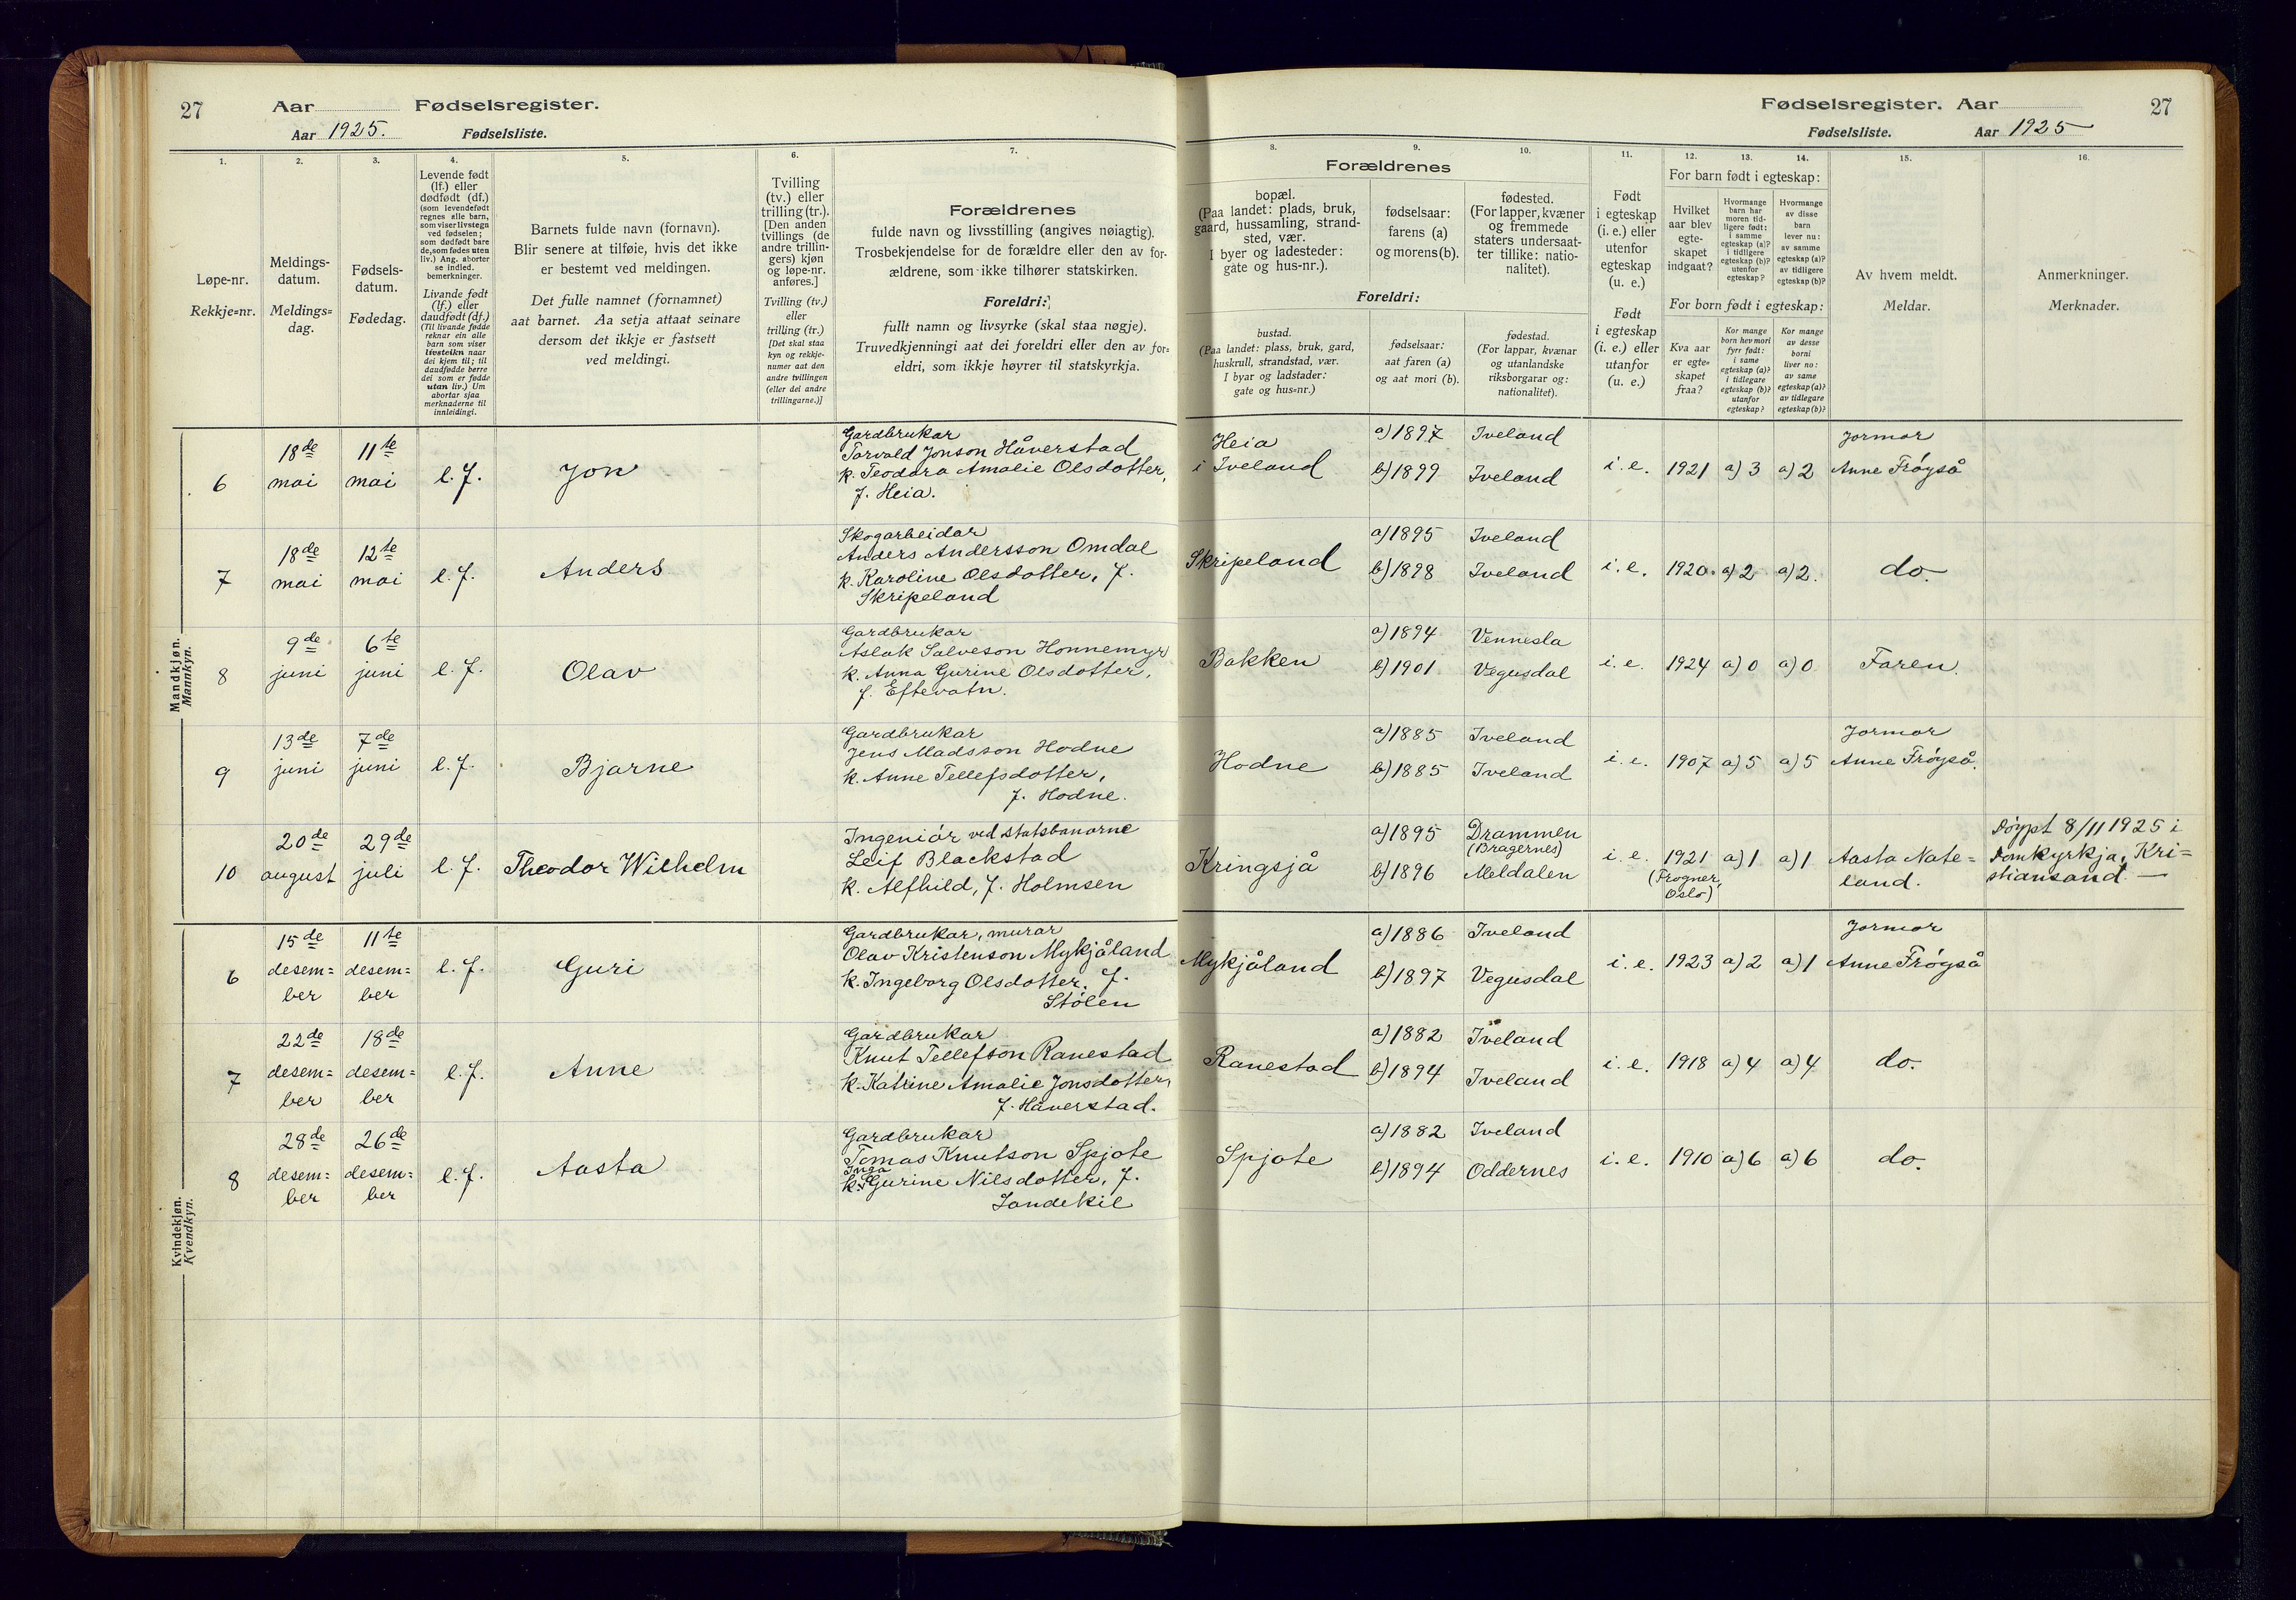 27 Aar Fødselsregister.
Aar 1925. Fødselsliste.
Fødselsregister. Aar 27
Fødselsliste. Aar 1925
1.
Løpe-nr.
Rekkje=nr.
2.
Meldings-
datum.
Meldings=
dag.
3.
Fødsels-
datum.
Fødedag.
4.
Levende født
(lf.) eller
dødfødt (df.)
(som levendefødt
regnes alle barn,
som viser livstegn
ved fødselen;
som dødfødt bare
de, som fødes uten
liv.) Ang. aborter
se indled.
bemerkninger.
Livande født
(lf.) eller
daudfødt (df.)
(Til livande fødde
reknar ein alle
barn som viser
livsteikn naar
dei kjem til; til
daudfødde berre
dei som er fødde
utan liv.) Um
abortar sjaa
merknaderne til
innleidingi.
5.
Barnets fulde navn (fornavn).
Blir senere at tilføie, hvis det ikke
er bestemt ved meldingen.
Det fulle namnet (fornamnet)
aat barnet. Aa setja attaat seinare
dersom det ikkje er fastsett
ved meldingi.
6.
Tvilling
(tv.) eller
trilling (tr.).
[Den anden
tvillings (de
andre trillin-
gers) kjøn
og løpe-nr.
anføres.]
Tvilling (tv.)
eller
trilling (tr.)
[Det skal staa
kyn og rekkje-
numer aat den
andre tvillingen
(eller dei andre
trillingarne.)]
7.
Forældrenes
fulde navn og livsstilling (angives nøiagtig).
Trosbekjendelse for de forældre eller den av for-
ældrene, som ikke tilhører statskirken.
Foreldri:
fullt namn og livsyrke (skal staa nøgje).
Truvedkjenningi aat dei foreldri eller den av for=
eldri, som ikkje høyrer til statskyrkja.
8.
Forældrenes
bopæl.
(Paa landet: plads, bruk,
gaard, hussamling, strand-
sted, vær.
I byer og ladesteder:
gate og hus-nr.).
Foreldri:
bustad.
(Paa landet: plass, bruk, gard,
huskrull, strandstad, vær.
I byar og ladstader:
gate og hus=nr.)
9.
fødselsaar:
farens (a)
og morens (b).
fødselsaar:
aat faren (a)
og aat mori (b).
10.
fødested.
(For lapper, kvæner
og fremmede
staters undersaat-
ter tillike: natio-
nalitet).
fødestad.
(For lappar, kvænar
og utanlandske
riksborgarar og:
nationalitet).
11.
Født
i egteskap
(i. e.) eller
utenfor
egteskap
(u. e.)
Født
i egteskap
(i. e.) eller
utanfor
(u. e.)
12.
For barn født i egteskap:
Hvilket
aar blev
egte-
skapet
indgaat?
For born født i egteskap:
Kva aar
er egte-
skapet
fraa?
13.
Hvormange
barn har
moren tid-
ligere født:
i samme
egteskap (a)?
i tidligere
egteskap (b)?
utenfor
egteskap?
Kor mange
born hev mori
fyrr født:
i same
egteskap (a)?
i tidlegare
egteskap (b)?
utanfor
egteskap?
14.
Hvormange
av disse
barn
lever nu:
av samme
egteskap (a)?
av tidligere
egteskap (b)?
Kor mange
av desse
borni
liver no:
av same
egteskap (a)?
av tidlegare
egteskap (b)?
15.
Av hvem meldt.
Meldar.
16.
Anmerkninger.
Merknader.
Mandkjøn.
Mannkyn.
6
18de
mai
11te
mai
l.f.
Jon
Gardbrukar
Torvald Jonson Håverstad
k. Teodora Amalie Olsdotter,
f. Heia.
Heia
i Iveland
a) 1897 Iveland
b) 1899 Iveland
i. e. 1921 a) 3 a) 2
Jormor
Anne Frøyså
7
18de
mai
12te
mai
l.f.
Anders
Skogarbeidar
Anders Andersson Omdal
k. Karoline Olsdotter, f.
Skripeland
Skripeland
a) 1895 Iveland
b) 1898 Iveland
i. e. 1920. a) 2 a) 2.
do.
8
9de
juni
6te
juni
l.f.
Olav
Gardbrukar
Aslak Salveson Honnemyr
k. Anna Gurine Olsdotter,
f. Eftevatn.
Bakken
a) 1894 Vennesla
b) 1901 Vegusdal
i. e. 1924 a) 0 a) 0
Faren.
9
13de
juni
7de
juni
l.f.
Bjarne
Gardbrukar
Jens Madsson Hodne
k. Anne Tellefsdotter,
f. Hodne.
Hodne
a) 1885 Iveland
b) 1885 Iveland
i. e. 1907 a) 5 a) 5
Jormor
Anne Frøyså.
10
20de
august
29de
juli
l.f.
Theodor Wilhelm
Ingeniør ved statsbanorne
Leif Blackstad
k. Alfhild, f. Holmsen
Kringsjå
a) 1895 Drammen
(Bragernes)
b) 1896 Meldalen
i. e. 1921 a) 1 a) 1
(Frogner,
Oslo)
Aasta Nate=
land.
Døypt 8/11 1925 i
Domkyrkja, Kri=
stiansand. —
Kvindekjøn.
Kvendkyn.
6
15de
desem=
ber
11te
desem=
ber
l.f.
Guri
Gardbrukar, murar
Olav Kristenson Mykjåland
k. Ingeborg Olsdotter, f.
Stølen
Mykjåland
a) 1886 Iveland
b) 1897 Vegusdal
i. e. 1923 a) 2 a) 1
Jormor
Anne Frøyså
7
22de
desem=
ber
18de
desem=
ber
l.f.
Anne
Gardbrukar
Knut Tellefson Ranestad
k. Katrine Amalie Jonsdotter,
f. Håverstad.
Ranestad
a) 1882 Iveland
b) 1894 Iveland
i. e. 1918 a) 4 a) 4
do.
8
28de
desem=
ber
26de
desem=
ber
l.f.
Aasta
Gardbrukar
Tomas Knutson Spjote
Inga
k. Gurine Nilsdotter, f.
Sandekil
Spjote
a) 1882 Iveland
b) 1894 Oddernes
i. e. 1910 a) 6 a) 6
do.